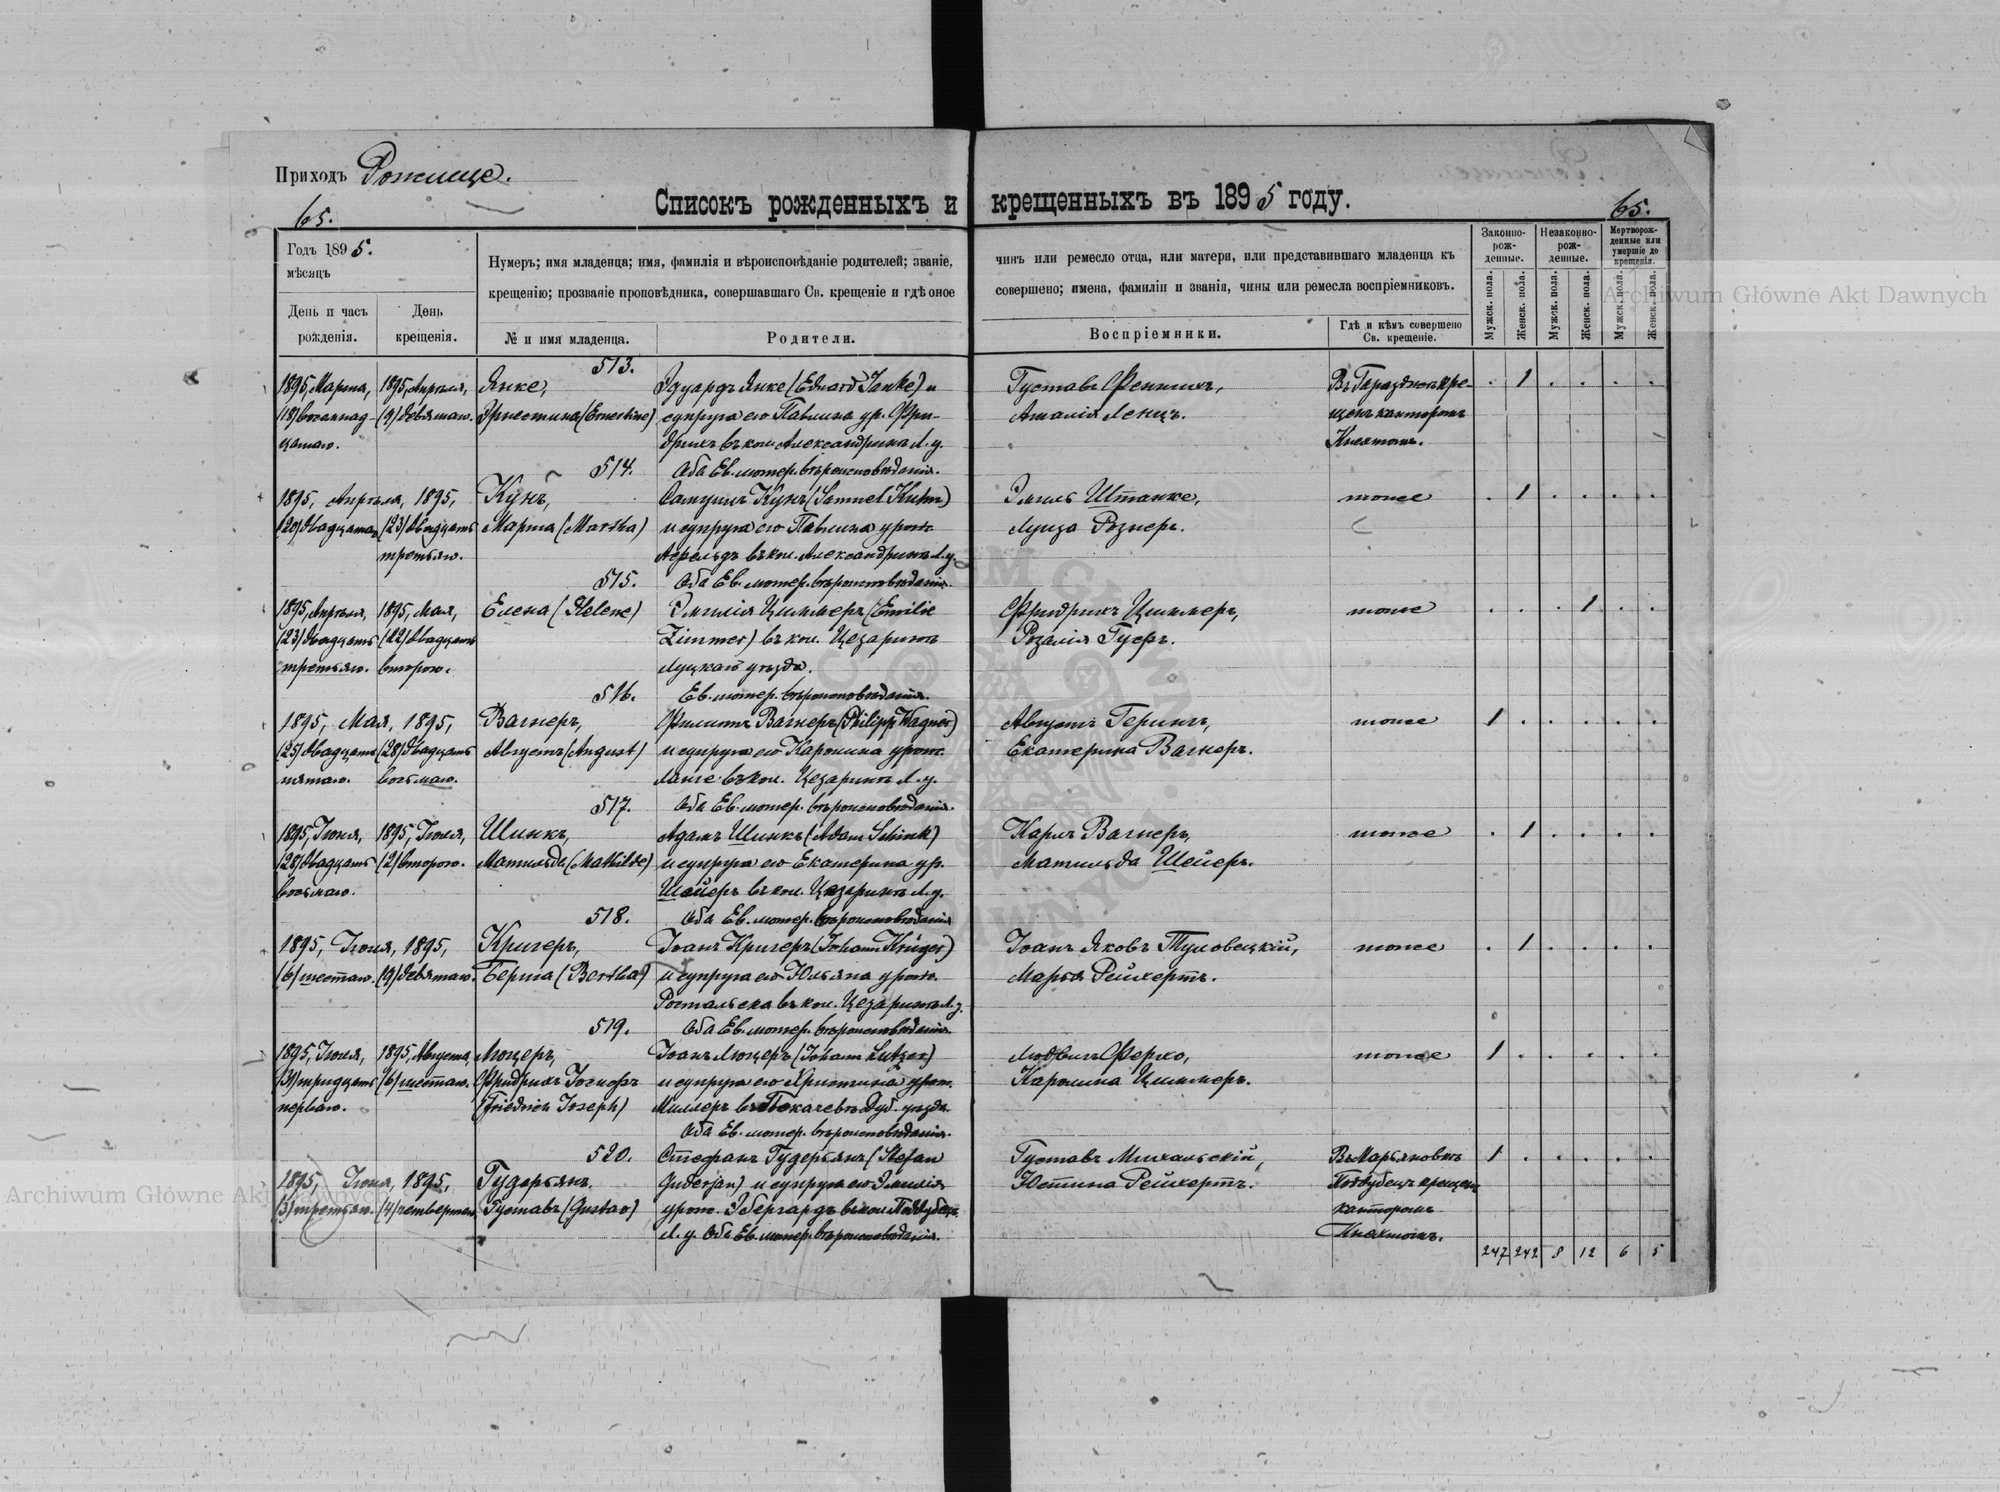 Приходъ Рожище.
Списокъ рожденныхъ и крещенныхъ въ 1895 году.
65.
65.
Годъ 1895.
мѣсяцъ
День и часъ рожденія.
День крещенія.
Нумеръ; имя младенца; имя, фамилія и вѣроисповѣданіе родителей; званіе, чинъ или ремесло отца, или матери, или представившаго младенца къ
крещенію; прозваніе проповѣдника, совершавшаго Св. крещеніе и гдѣ оное совершено; имена, фамиліи и званія, чины или ремесла воспріемниковъ.
№ и имя младенца.
Родители.
Воспріемники.
Гдѣ и кѣмъ совершено Св. крещеніе.
Законно-рож-денные.
Незаконно-рож-денные.
Мертворож-денные или умершіе до крещенія.
Мужск. пола.
Женск. пола.
Мужск. пола.
Женск. пола.
Мужск. пола.
Женск. пола.
513.
1895, Марта, 1895, Апрѣля, Янке, Эдуардъ Янке (Eduard Janke) и Густавъ Фенихъ, . 1 . . . .
(18) восемнад- (9) девятаго. Эрнестина (Ernestine) супруга его Павлина ур. Фри- Амалія Ленцъ. щенъ канторомъ
цатаго. дрихъ въ кол. Александрина Л. у. Кнехтомъ.
514. Оба Ев. лютер. вѣроисповѣданія.
1895, Апрѣля, 1895, Кунъ, Самуилъ Кунъ (Samuel Kuhn) Эмиль Штанке, тоже . 1 . . . .
(20) двадцатаго (23) двадцать Марта (Martha) и супруга его Павлина урож. Луиза Рознеръ.
третьяго. въ кол. Александрина Л. у.
515. Оба Ев. лютер. вѣроисповѣданія.
1895, Апрѣля, 1895, Мая, Елена (Helene) Эмилія Циммеръ (Emilie Фридрихъ Циммеръ, тоже . . . 1 . .
(23) двадцать (22) двадцать Zimmer) въ кол. Цезаринъ Розалія Гусъ.
третьяго. второго. Луцкаго уѣзда.
516. Ев. лютер. вѣроисповѣданія.
1895, Мая, 1895, Вагнеръ, Филиппъ Вагнеръ (Philipp Wagner) Августъ Герингъ, тоже 1 . . . . .
(25) двадцать (28) двадцать Августъ (August) и супруга его Каролина урож. Екатерина Вагнеръ.
пятаго. восьмаго. Ланге въ кол. Цезаринъ Л. у.
517. Оба Ев. лютер. вѣроисповѣданія.
1895, Іюня, 1895, Іюля, Шинкъ, Адамъ Шинкъ (Adam Schink) Карлъ Вагнеръ, тоже . 1 . . . .
(28) двадцать (2) второго. Матильда (Mathilde) и супруга его Екатерина ур. Матильда Шейеръ.
восьмаго. Шейеръ въ кол. Цезаринъ Л. у.
518. Оба Ев. лютер. вѣроисповѣданія
1895, Іюля, 1895, Кригеръ, Іоанъ Кригеръ (Johann Krüger) Іоанъ Яковъ Туловецкій, тоже . 1 . . . .
(6) шестаго. (9) девятаго. Берта (Bertha) и супруга его Юльяна урож. Марья Рейхертъ.
въ кол. Цезаринъ Л. у.
519. Оба Ев. лютер. вѣроисповѣданія.
1895, Іюля, 1895, Августа, Люцеръ, Іоанъ Люцеръ (Johann Lutzer) Людвигъ Ферхо, тоже 1 . . . . .
(31) тридцать (6) шестаго. Фридрихъ Іосифъ и супруга его Христина урож. Каролина Циммеръ.
перваго. (Friedrich Joseph) Миллеръ въ Покачевѣ Дуб. уѣзда.
Оба Ев. лютер. вѣроисповѣданія.
520. Стефанъ Гудерьянъ (Stefan Густавъ Михальскій, 1 . . . . .
1895, Іюля, 1895, Гудерьянъ, Guderjan) и супруга его Эмилія Юстина Рейхертъ.
(3) третьяго. (4) четвертаго. Густавъ (Gustav) урож. Эбергардъ въ кол. Поддубецъ канторомъ
Л. у. Оба Ев. лютер. вѣроисповѣданія. Кнехтомъ.
247 242 8 12 6 5
Archiwum Główne Akt Dawnych
Archiwum Główne Akt Dawnych